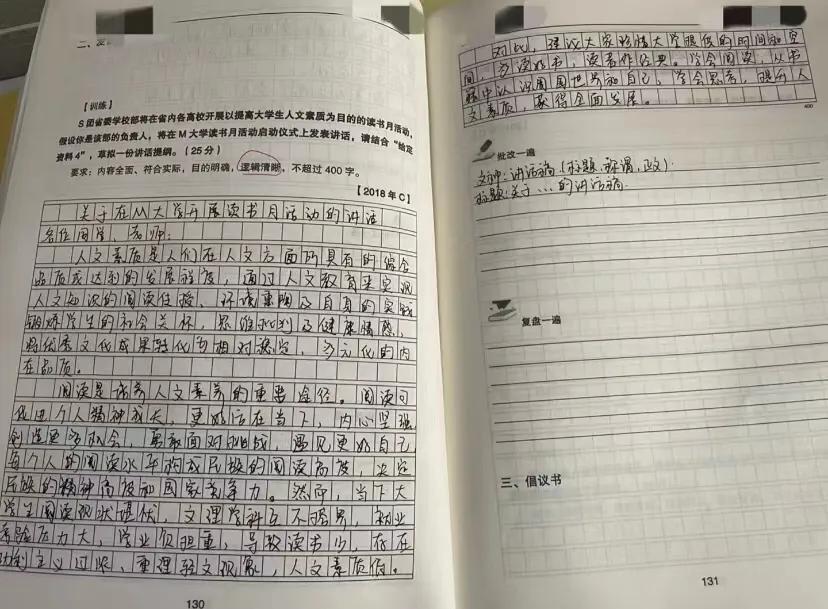 【训练】
S团省委学校部将在省内各高校开展以提高大学生人文素质为目的的读书月活动,
假设你是该部的负责人,将在M大学读书月活动启动仪式上发表讲话,请结合“给定
资料4”,草拟一份讲话提纲。(25分)
要求:内容全面、符合实际,目的明确,逻辑清晰,不超过400字。
【2018年C】
关于在M大学开展读书月活动的讲话
各位同学、老师:
人文素质是人们在人文方面所具有的综合
品质或达到的发展程度,通过人文教育来实现
人文知识的阅读体验、环境熏陶及自身的实践
学生的社会关怀,思维批判及健康情感,
将优秀文化成果转化为相对稳定,多元化的内
在品质。
阅读是培养人文素养的重要途径。阅读可
促进个人精神成长,更好活在当下,内心坚强
创造更多机会,勇敢面对挑战,遇见更好自己
每个人的阅读水平构成民族的阅读高度,决定
民族的精神高度和国家竞争力。然而,当下大
学生阅读现状堪忧,文理学科互不跨界,就业
考验压力大,学业负担重,导致读书少,存在
功利主义过浓、重理轻文现象,人文素质低。
130
对此,建议大家珍惜大学很低的时间和空
间,多读好书,读著作经典。学会阅读,从书
籍中认识周围世界和自己,学会思考,提升人
文素质,获得全面发展。
400
批改一遍
文种:讲话稿(标题、称谓、正文)
标题:关于…的讲话稿
复盘一遍
三、倡议书
131